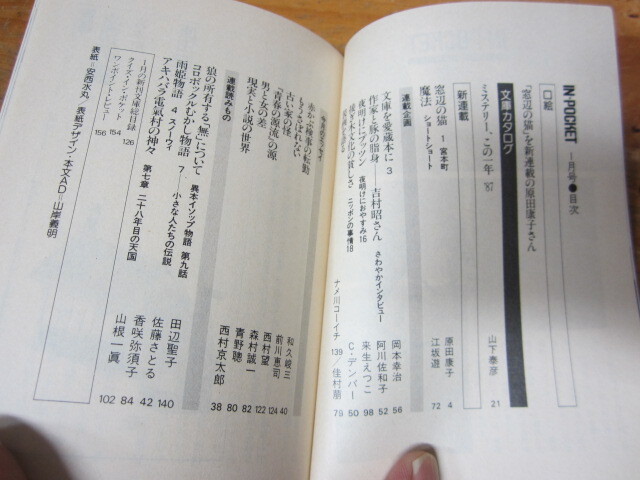 IN★POCKET 一月号●目次
口絵
"窓辺の猫"を新連載の原田康子さん
文庫カタログ
ミステリー、この一年 '87 山下泰彦 21
新連載
窓辺の猫 1 宮本町 原田康子 4
魔法 ショートショート 江坂遊 72
連載企画
文庫を愛蔵本に 3 岡本幸治 56
作家と豚の脂身――吉村昭さん さわやかインタビュー 阿川佐和子 52
夜明けにブッツン 夜明けにおやすみ16 来生えつこ 98
ニッポンの事情18 C・デンバー 50
ナメ川コーイチ 139/佳村萠 79
赤かぶ検事の転勤 和久峻三 40
もうさばらない 前川恵司 124
古い家の怪 西村望 122
「青春の源流」の源 森村誠一 82
男と女の差 青野聰 80
現実と小説の世界 西村京太郎 38
連載読みもの
狼の所有する「無」について 異本イソップ物語 第九話 田辺聖子 140
コロボックルむかし物語 7 小さな人たちの伝説 佐藤さとる 42
雨姫物語 4 スノーウィ 香咲弥須子 84
アキハバラ電氣村の神々 第七章 二十八年目の天国 山根一眞 102
1月の新刊文庫総目録 126
クイズ・イン・ポケット 154
ワンポイント・レビュー 156
表紙=安西水丸／表紙デザイン・本文AD=山岸義明